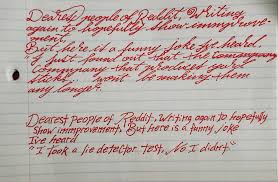 Dearest people of Reddit, Writing
again to hopefully show immprove-
ment,
But here is a funny Joke Ive heard.
"I Just found out that the company
Company that produces yard
sticks wont be making them
any longer".
Dearest People of Reddit, Writing again to hopefully
show immprovement, But here is a funny Joke
Ive heard
"I Took a lie detector test, No I didnt"